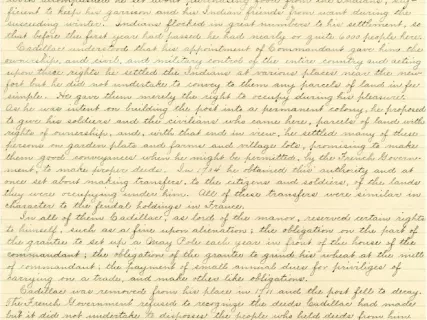 ficient to keep his garrison and his Indian friends from want during the
succeeding winter. Indians flocked in great numbers to his settlement, so
that before the first year had passed he had nearly or quite 6000 people here.
Cadillac understood that his appointment of Commandant gave him the
ownership, and civil, and military control of the entire country and acting
upon these rights he settled the Indians at various places near the new
fort but he did not undertake to convey to them any parcels of land in fee
simple. He gave them merely the right to occupy during his pleasure.
As he was intent on building the post into a permanent colony, he proposed
to give his soldiers and the civilians who came here, parcels of land with
rights of ownership, and, with that end in view, he settled many of these
persons on garden plats and farms and village lots, promising to make
them good conveyances when he might be permitted, by the French Govern-
ment, to make proper deeds. In 1704 he obtained this authority and at
once set about making transfers, to the citizens and soldiers, of the lands
they were occupying under him. All of these transfers were similar in
character to the feudal holdings in France.
In all of them Cadillac, as lord of the manor, reserved certain rights
to himself, such as a fine upon alienation; the obligation on the part of
the grantee to set up a May Pole each year in front of the house of the
commandant; the obligation of the grantee to grind his wheat at the mill
of commandant; the payment of small annual dues for privilege of
carrying on a trade, and many other like obligations.
Cadillac was removed from his place in 1711 and the post fell to decay.
The French Government refused to recognize the deeds Cadillac had made
but it did not undertake to dispossess the people who held deeds from him